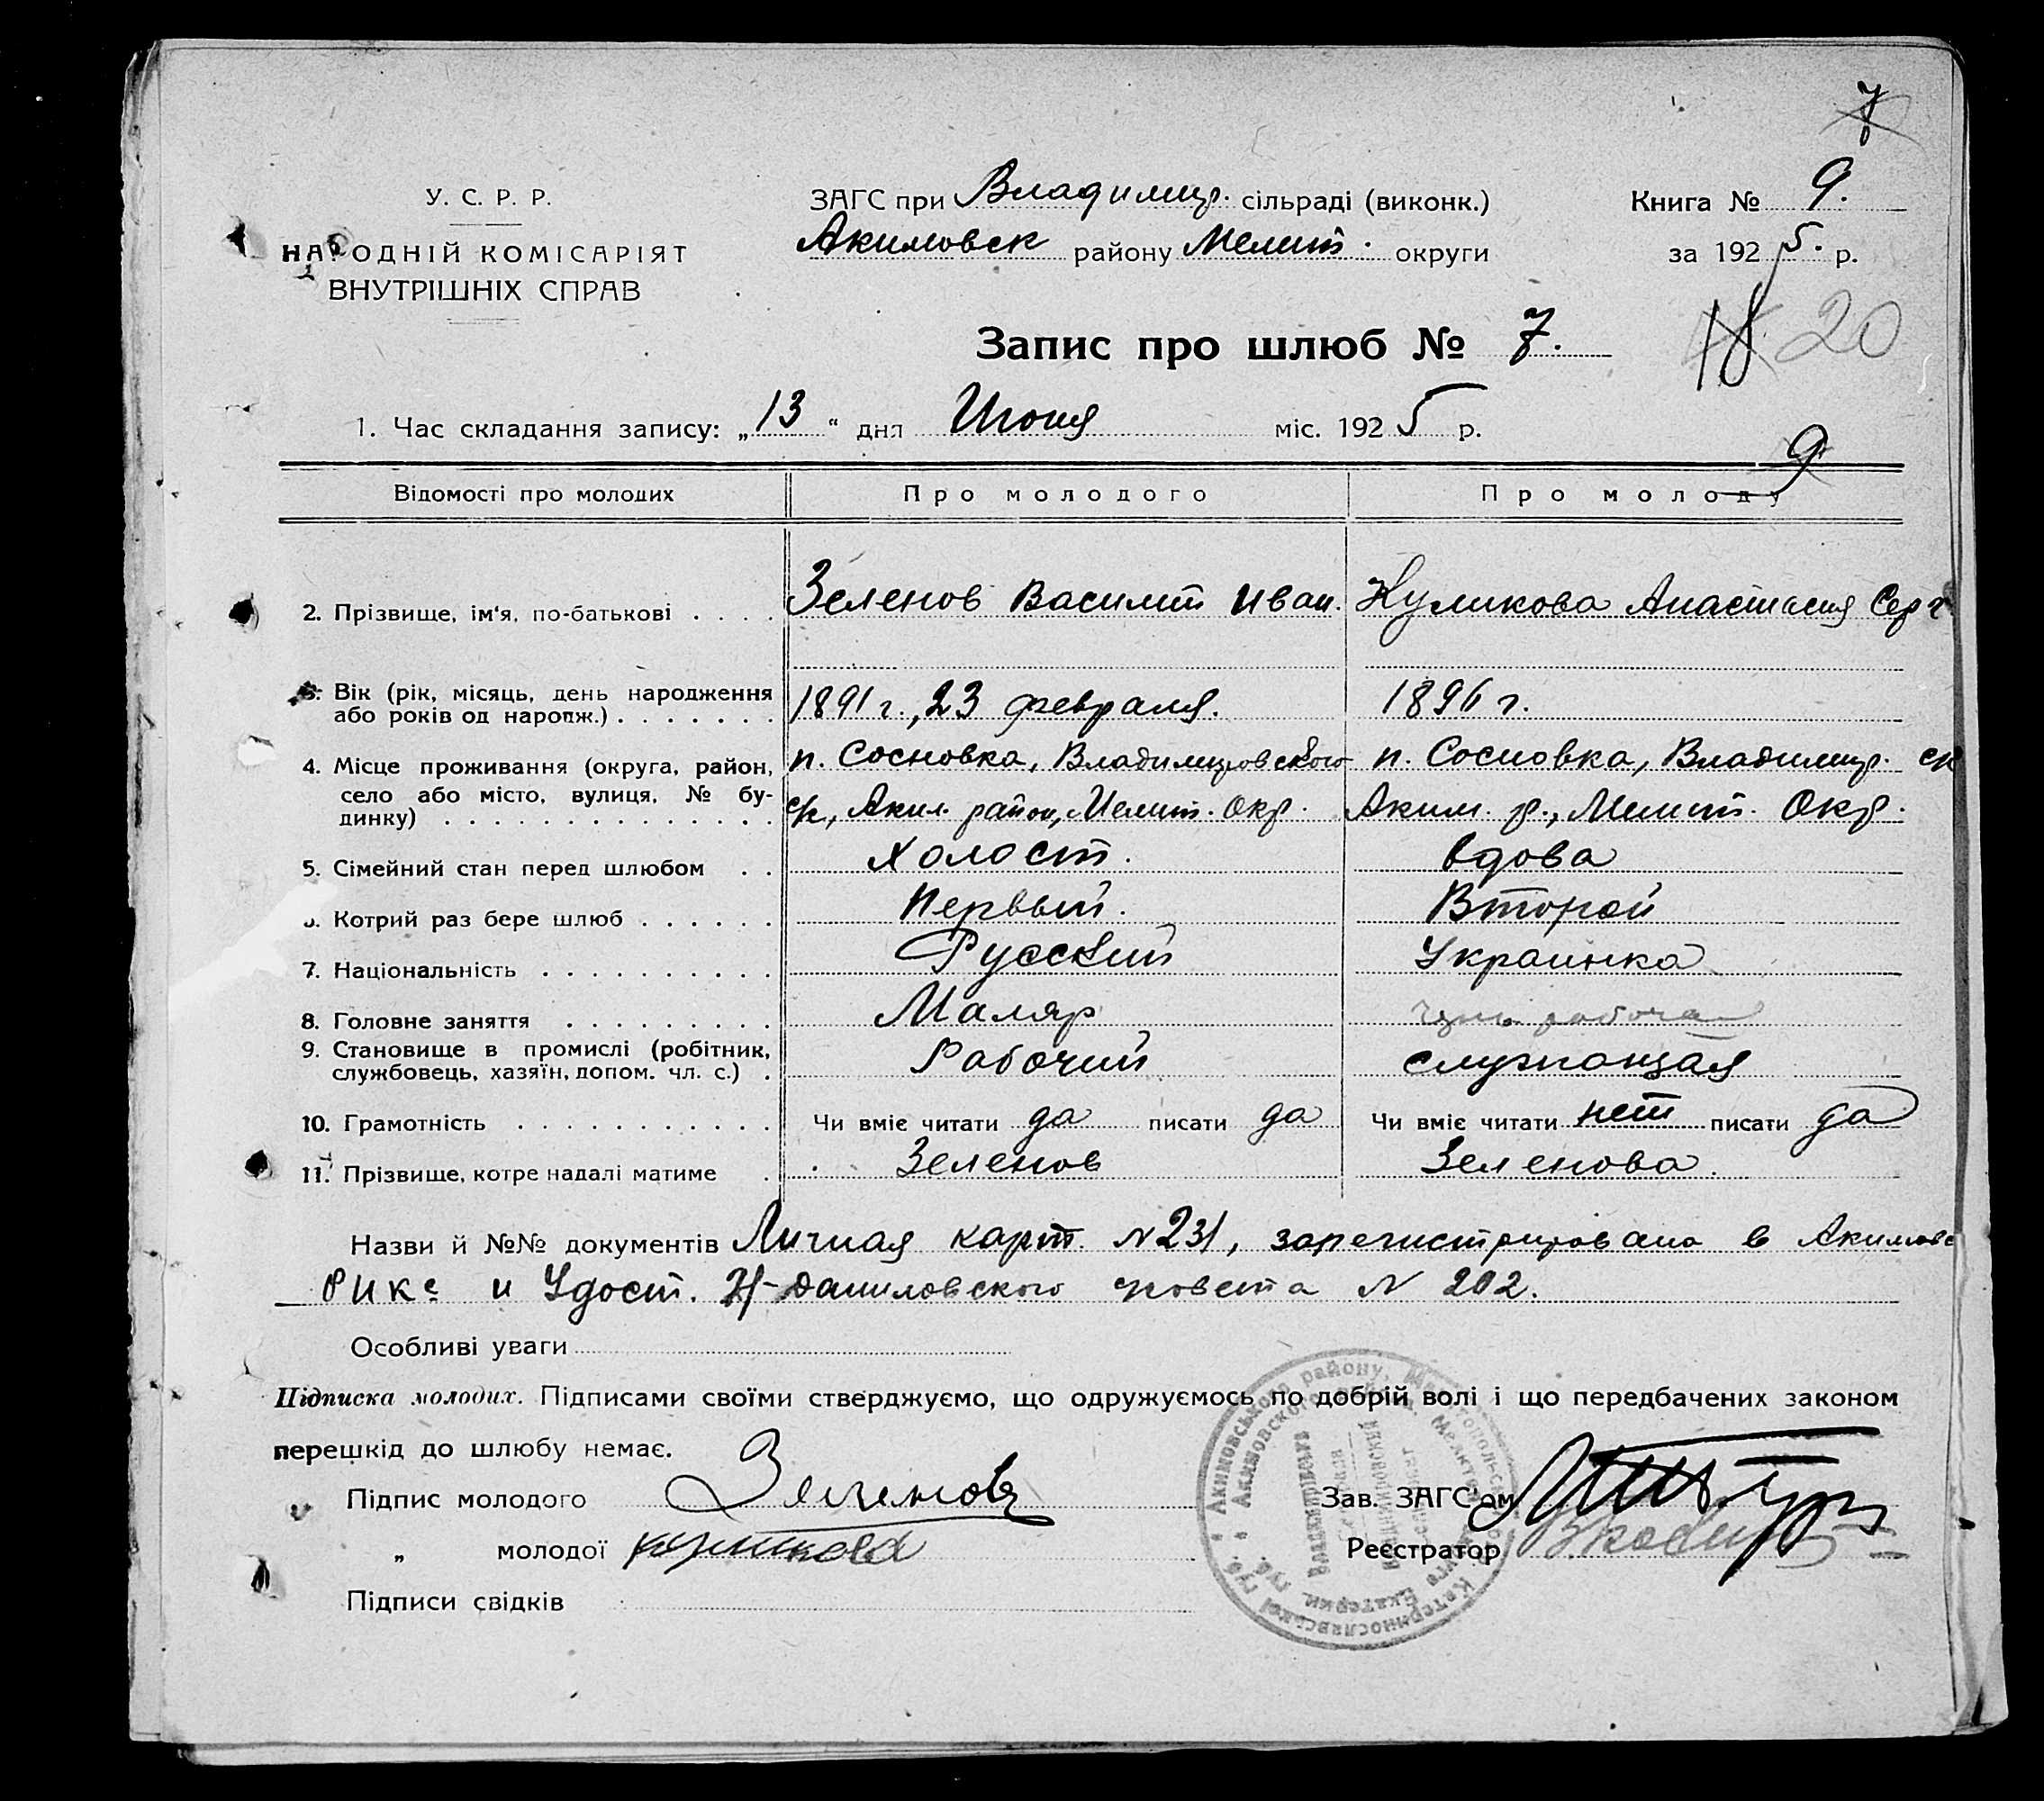 7
У. С. Р. Р.
НАРОДНІЙ КОМІСАРІЯТ
ВНУТРІШНІХ СПРАВ
ЗАГС при Владимир. сільраді (виконк.)
Акимовск району Мелит. округи
Книга № 9.
за 1925. р.
Запис про шлюб № 7.
18 20
1. Час складання запису: „13“ дня Июня міс. 1925 р.
9
Відомості про молодих Про молодого Про молоду
2. Прізвище, ім'я, по-батькові . . . . Зеленов Василий Иван. Куликова Анастасия Серг.
3. Вік (рік, місяць, день народження
або років од народж.) . . . . . . . 1891 г., 23 февраля. 1896 г.
4. Місце проживання (округа, район, п. Сосновка, Владимировского п. Сосновка, Владимир. ск
село або місто, вулиця, № бу-
динку) . . . . . . . . . . . . . . с/к, Аким. район, Мелит. Окр. Аким. р., Мелит. Окр.
5. Сімейний стан перед шлюбом . . Холост. вдова
6. Котрий раз бере шлюб . . . . . . Первый. Второй
7. Національність . . . . . . . . . . Русский Украинка
8. Головне заняття . . . . . . . . . Маляр рабочая
9. Становище в промислі (робітник,
службовець, хазяїн, допом. чл. с.) . Рабочий служащая
10. Грамотність . . . . . . . . . . . Чи вміє читати да писати да Чи вміє читати нет писати да
11. Прізвище, котре надалі матиме . Зеленов Зеленова.
Назви й №№ документів Личная карт. N 231, зарегистрирована в Акимовс
РИКе и Удост. Н-Даниловского с/совета N 202.
Особливі уваги
Підписка молодих. Підписами своїми стверджуємо, що одружуємось по добрій волі і що передбачених законом
перешкід до шлюбу немає.
Підпис молодого Зеленов Зав. ЗАГС'ом
„ молодої Куликова Реєстратор
Підписи свідків